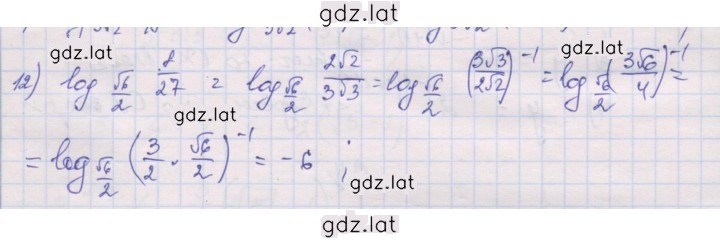 gdz.lat
12) log_{√6/2} 8/27 = log_{√6/2} 2√2/3√3 = log_{√6/2} (3√3/2√2)^{-1} = log_{√6/2} (3√6/4)^{-1} =
gdz.lat gdz.lat
gdz.lat
= log_{√6/2} (3/2 · √6/2)^{-1} = -6 ;
gdz.lat
gdz.lat